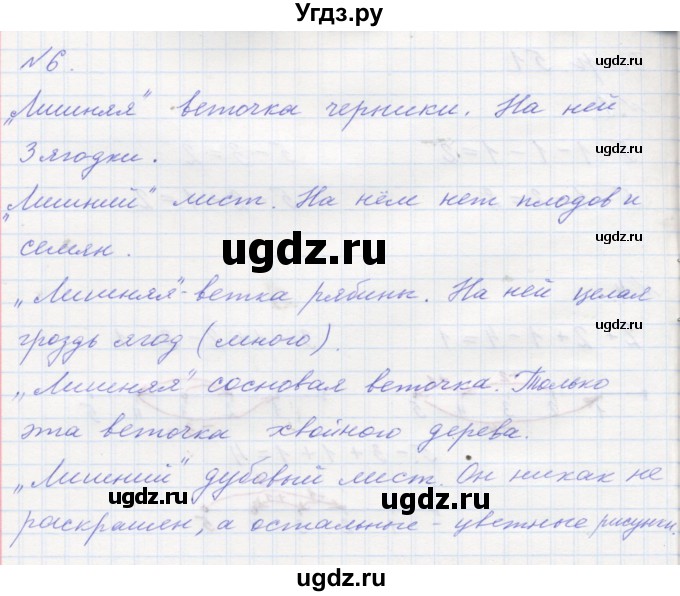 Угдз.ру
ugdz.ru
№6.
„Лишняя" веточка черники. На ней
ugdz.ru
3 ягодки.
„Лишний" лист. На нём нет плодов и
семян.
ugdz.ru
ugdz.ru
„Лишняя"-ветка рябины. На ней целая
гроздь ягод (много).
ugdz.ru
„Лишняя" сосновая веточка. Только
эта веточка хвойного дерева.
„Лишний" дубовый лист. Он никак не
ugdz.ru
ugdz.ru
раскрашен, а остальные - цветные рисунки.
ugdz.ru
ugdz.ru